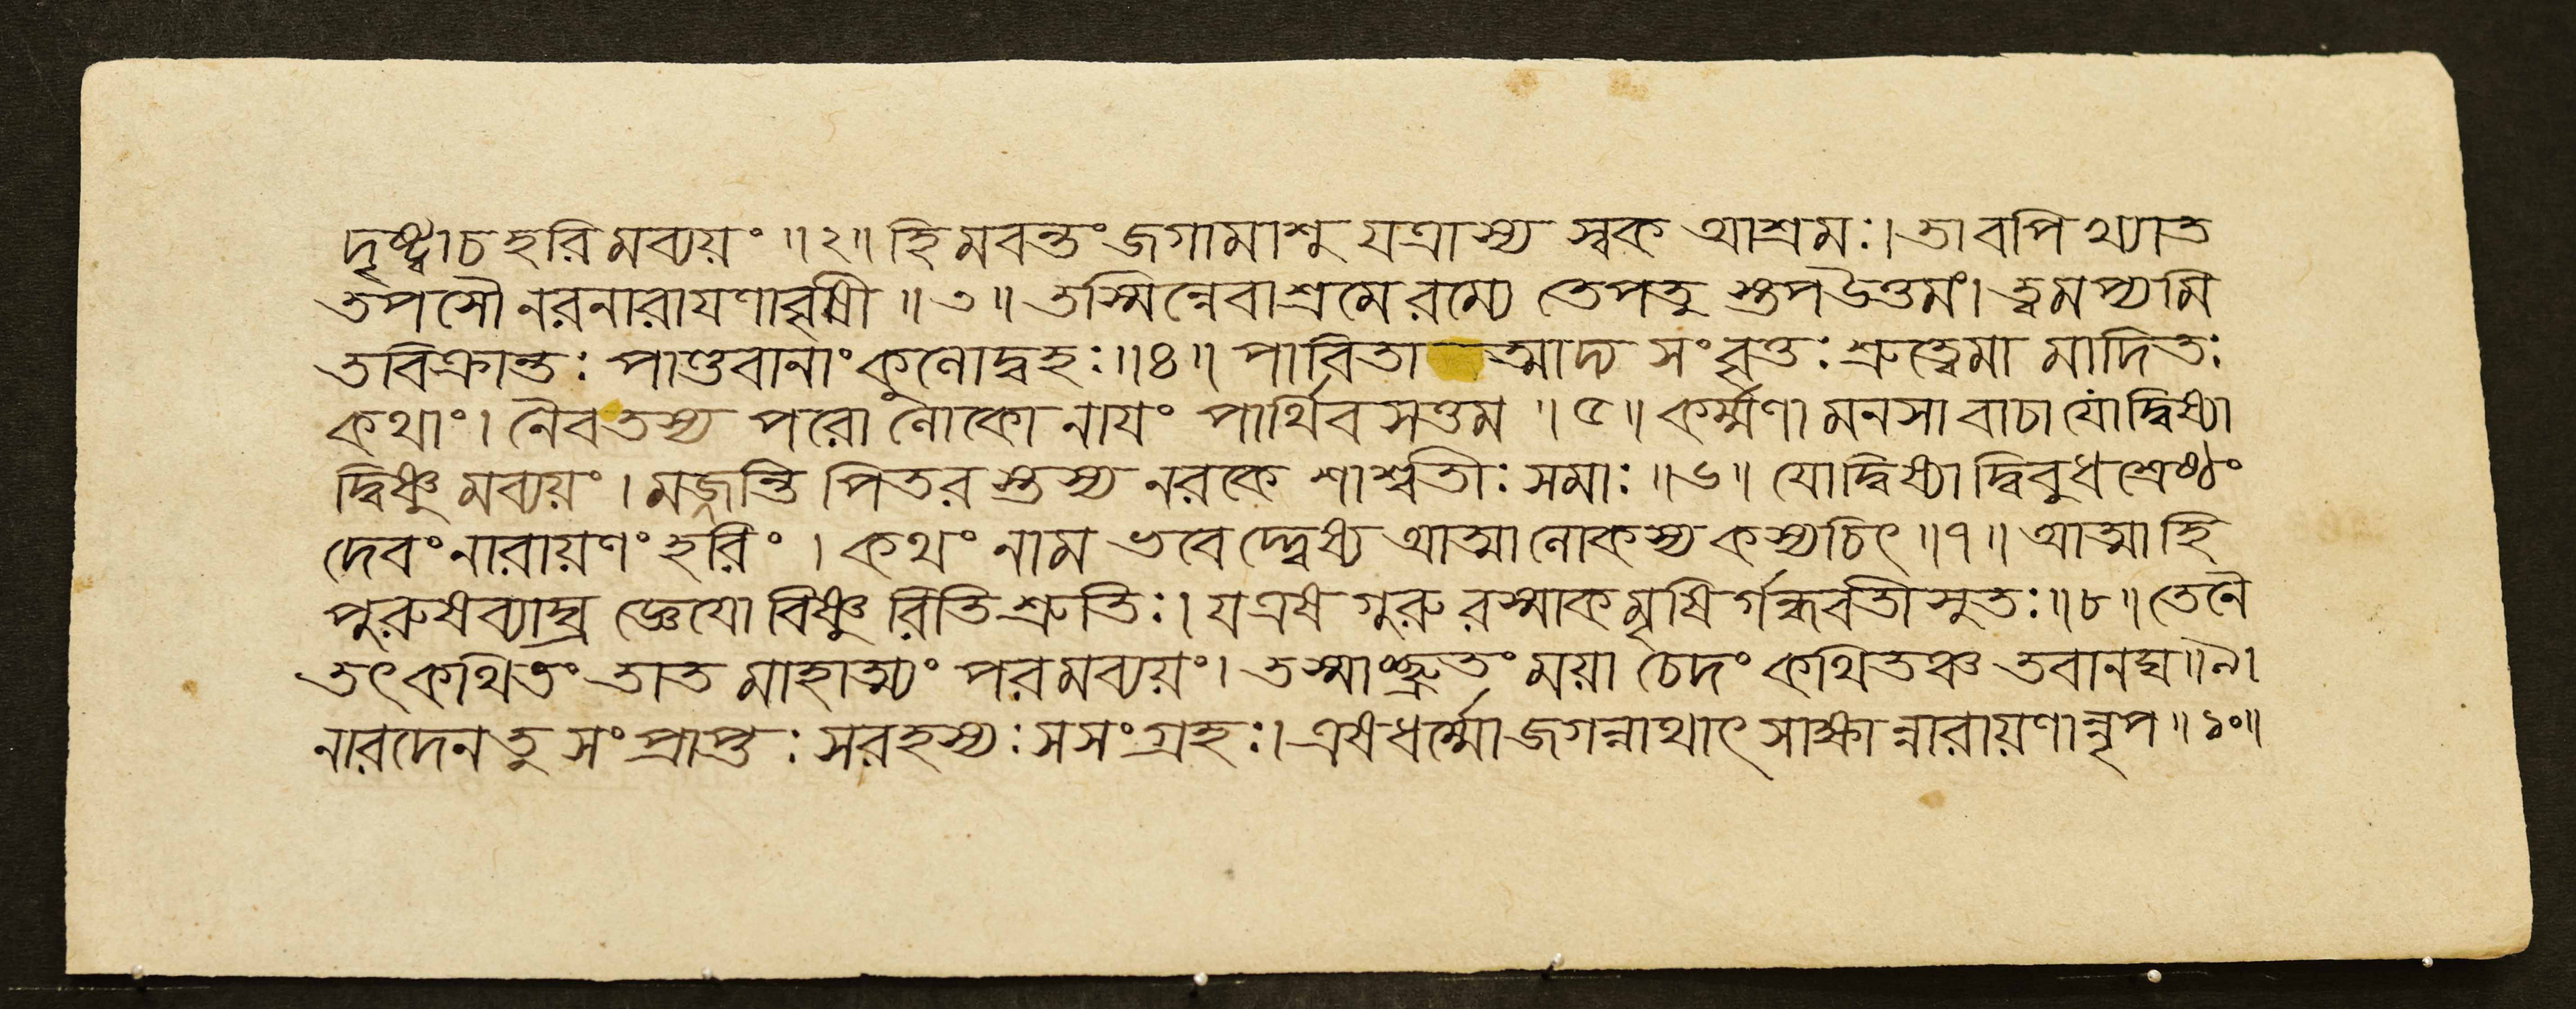 দৃষ্ট্বাচ হরি মব্যয়ং ॥২॥ হিমবন্তং জগামাশু যত্রাস্য স্বক আশ্রমঃ। তাবপি খ্যাত
তপসৌ নরনারাযণাবৃষী ॥৩॥ তস্মিন্নেবাশ্রমে রম্যে তেপতু স্তপউত্তমং। ত্বমপ্যমি
তবিক্রান্তঃ পাণ্ডবানাং কুলোদ্বহঃ॥৪॥ পাবিতা ত্মাদ্য সংবৃত্তঃ শ্রুত্বেমা মাদিতঃ
কথাং। নৈবতস্য পরো লোকো নাযং পার্থিব সত্তম ।৫॥ কর্ম্মণা মনসা বাচা যোদ্বিষ্যা
দ্বিষ্ণু মব্যয়ং। মজ্জন্তি পিতর স্তস্য নরকে শাশ্বতীঃ সমাঃ॥৬॥ যোদ্বিষ্যা দ্বিবুধ শ্রেষ্ঠং
দেবং নারায়ণং হরিং । কথং নাম ভবে দ্দ্বেষ্য আত্মা লোকস্য কস্যচিৎ ॥৭॥ আত্মা হি
পুরুষব্যাঘ্র জ্ঞেযো বিষ্ণু রিতি শ্রুতিঃ। য এষ গুরু রস্মাকমৃষি র্গন্ধবতী সুতঃ॥৮॥ তেনৈ
তৎ কথিতং তাত মাহাত্ম্যং পরমব্যয়ং। তস্মাচ্ছ্রুতং ময়া চেদং কথিতঞ্চ তবানঘ॥৯।
নারদেন তু সংপ্রাপ্তঃ সরহস্যঃ সসংগ্রহঃ। এষধর্ম্মো জগন্নাথাৎ সাক্ষা ন্নারায়ণা ন্নৃপ॥১০॥